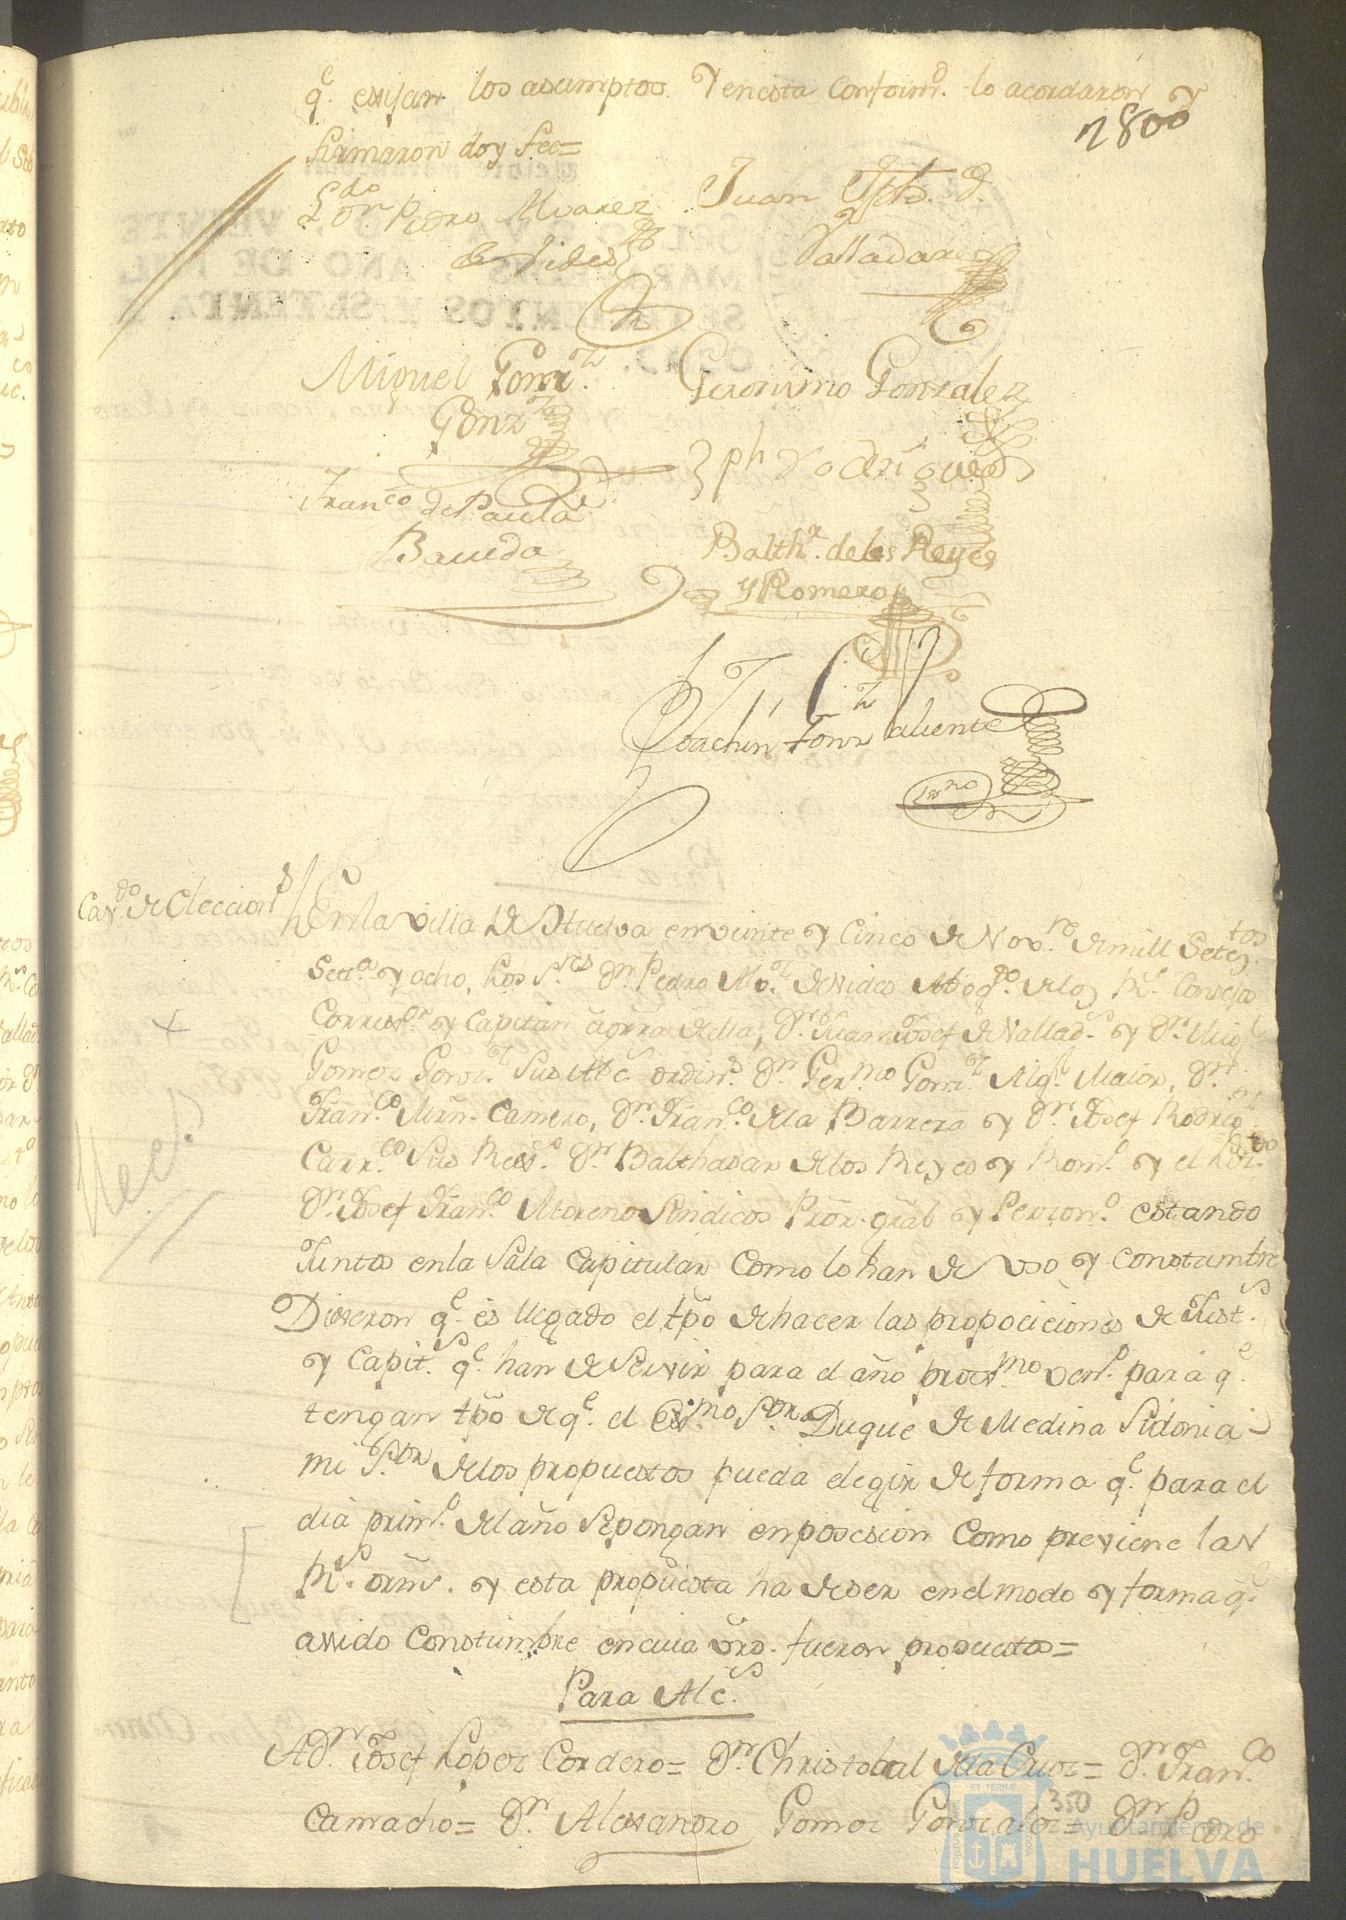 q.e exijan los asumptos. Y enesta conform.d lo acordaron y
2800
firmaron doy fee=
Ldo. Dn. Pedro Alvarez
de Vides
Juan Jph. d.
Valladares
Miguel Gomz.
Gonz
Geronimo Gonzalez
Jph Rodriguez
Franco. de Paula
Barreda
Balthr. de los Reyes
y Romero
Joachin Gonz Valiente
Esno
Cavdo. de Eleccions
En la villa de Huelva en veinte y cinco de Novre. de mill Setetos
Setta. y ocho, los Sres Dn. Pedro Alvz. de Vides Abogdo. de los Rs. Consejos
Corregor. y Capitan a grra de ella, Dn. Juan Josef de Vallads. y Dn. Migl.
Gomez Gonz. Sus Alcs. ordins. Dn. Germo. Gonz. Algl. Maior, Dn.
Franco. Mrn. Camero, Dn. Franco. de la Barrera y Dn. Josef Rodrigz
Carrco. Sus Rexs. Dn. Balthasar de los Reyes y Romo. y el Ldo.
Dn. Josef Franco. Moreno Sindicos Pror. gral y Person.o estando
Juntos en la Sala Capitular como lo han de uso y constumbre
Dixeron q.e es llegado el tpo de hacer las propociciones de Justs.
y Capits. q.e han de servir para el año proxmo. veno. para q.e
tengan tpo de q.e el Exmo Sor. Duque de Medina Sidonia
mi Sor de los propuestos pueda elegir de forma q.e para el
dia primo. del año Sepongan en posesion como previene las
Rs. orns. y esta propuesta ha de ser en el modo y forma q.e
a sido constumbre en cuia vrd. fueron propuestos=
Para Alcs.
A Dn. Josef Lopez Cordero= Dn. Christobal de la Cruz= Dn. Franco.
Camacho= Dn. Alexandro Gomez Gonzalez= Dn. Pedro
350
Ayuntamiento de
HUELVA